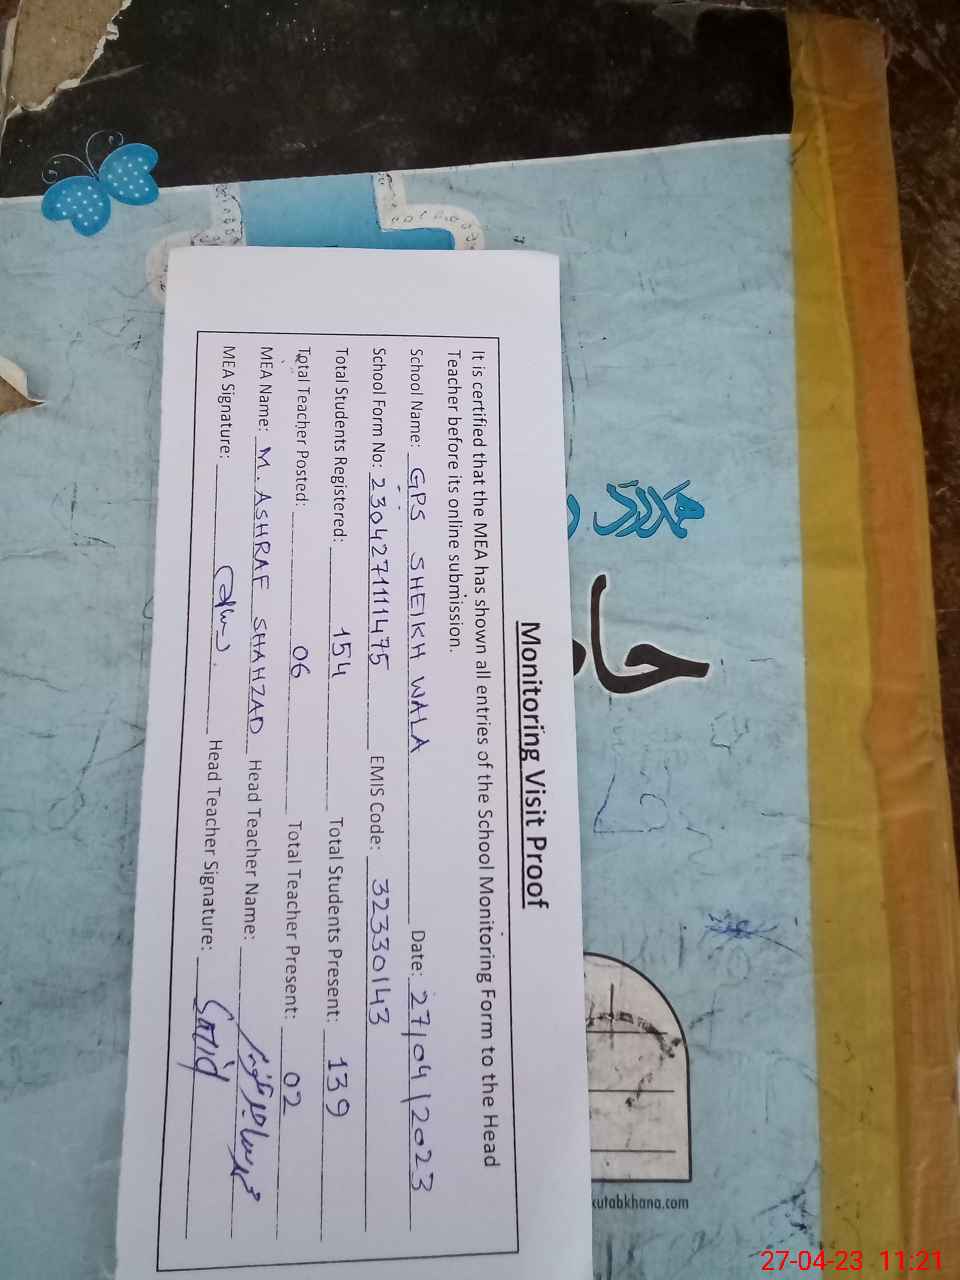 Monitoring Visit Proof
It is certified that the MEA has shown all entries of the School Monitoring Form to the Head
Teacher before its online submission.
School Name: GPS SHEIKH WALA Date: 27/04/2023
School Form No: 23042711111475 EMIS Code: 32330143
Total Students Registered: 154 Total Students Present: 139
Total Teacher Posted: 06 Total Teacher Present: 02
MEA Name: M. ASHRAF SHAHZAD Head Teacher Name:
MEA Signature: Head Teacher Signature: Sajid
ہمدرد
kutabkhana.com
27-04-23 11:21